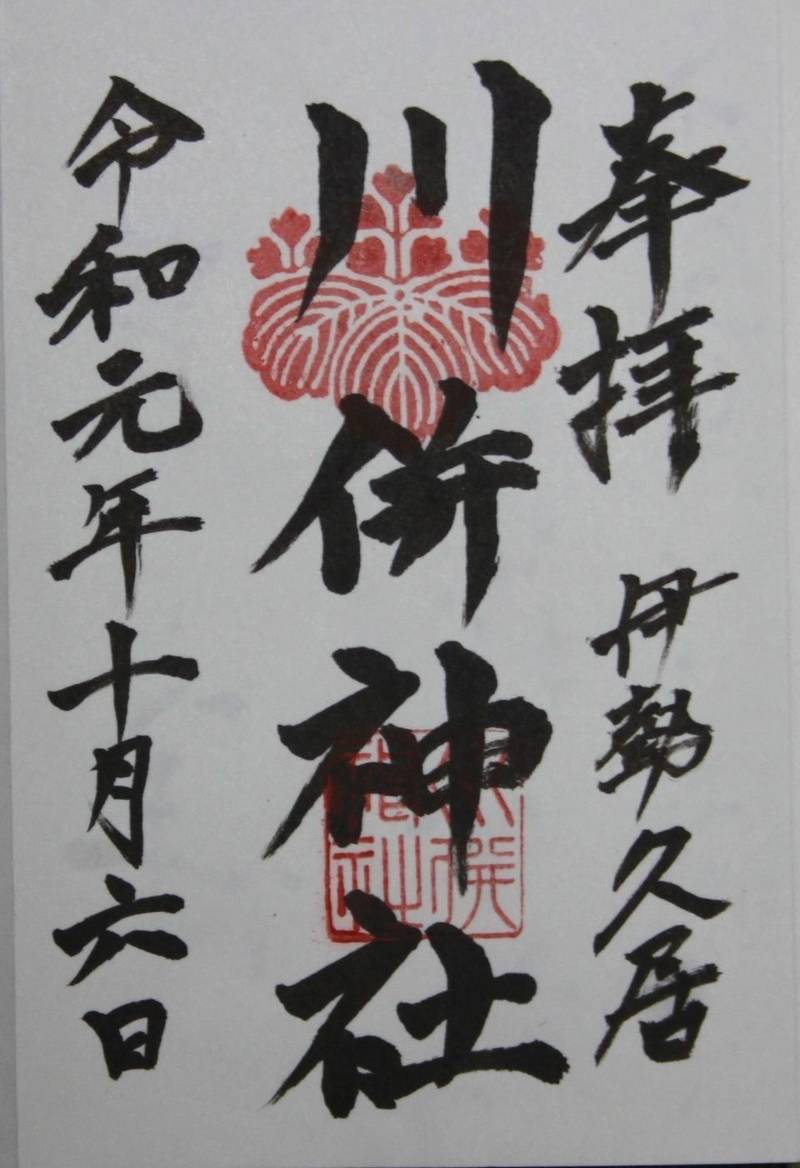 奉拝 伊勢久居
川併神社
令和元年十月六日